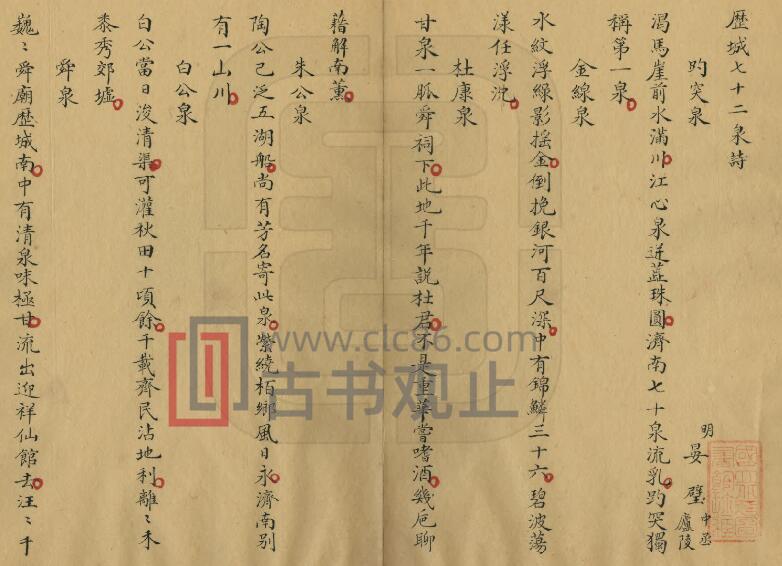 歷城七十二泉詩
明 晏璧 中丞 廬陵
趵突泉
渴馬崖前水滿川江心泉迸蕋珠圓濟南七十泉流乳趵突獨
稱第一泉
金線泉
水紋浮綠影搖金倒挽銀河百尺深中有錦鱗三十六碧波蕩
漾任浮沉
杜康泉
甘泉一脈舜祠下此地千年説杜君不是重華嘗嗜酒幾卮聊
藉解南薰
朱公泉
陶公已泛五湖船尚有芳名寄此泉縈繞栢鄉風日永濟南別
有一山川
白公泉
白公當日浚清渠可灌秋田十頃餘千載齊民沾地利離〻禾
黍秀郊墟
舜泉
巍〻舜廟歷城南中有清泉味極甘流出迎祥仙館去汪〻千
www.clc86.com
古书观止